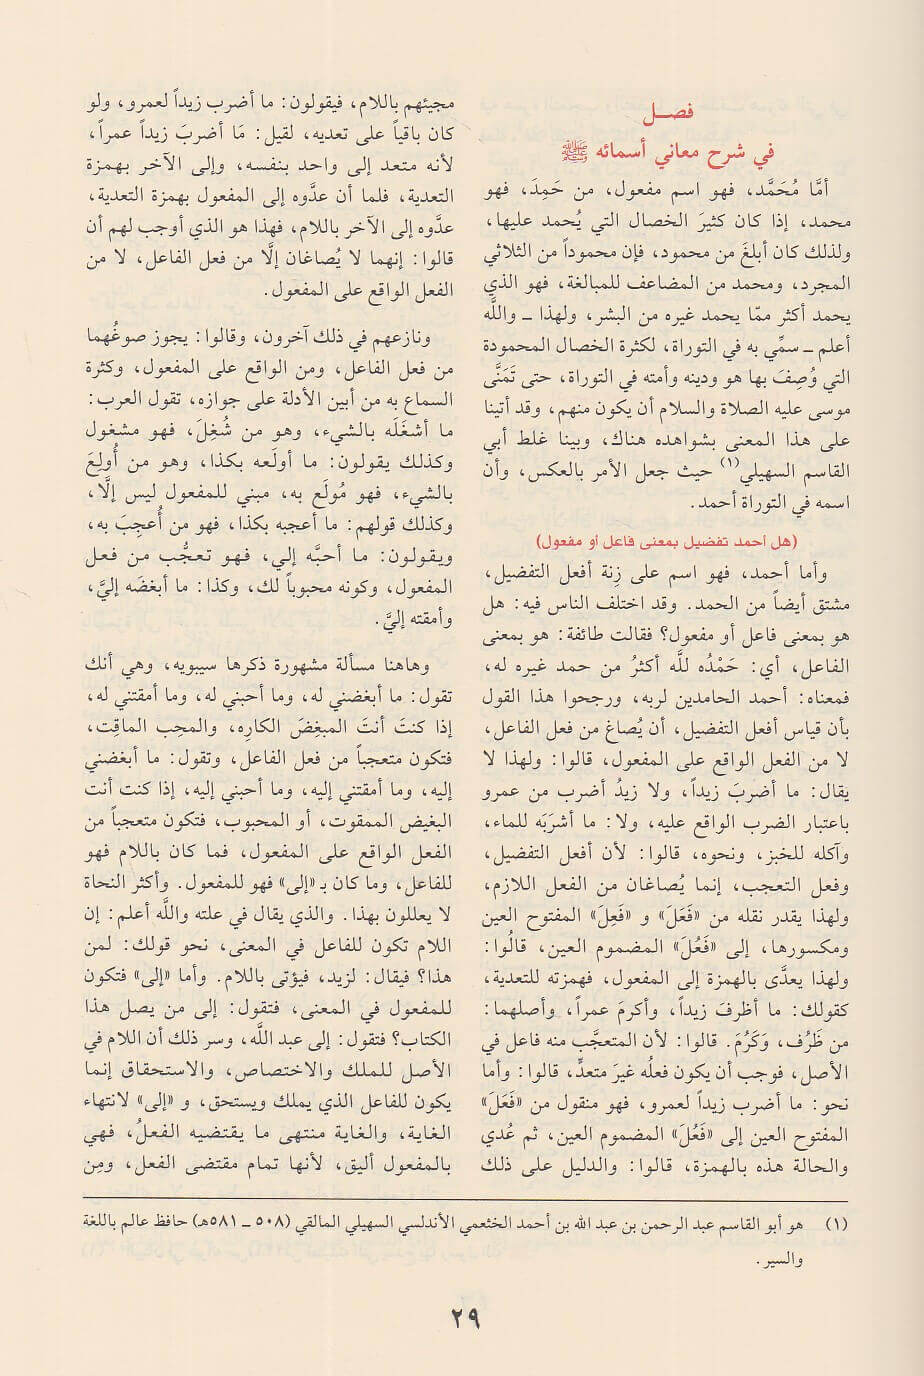 فصـل
في شرح معاني أسمائه ﷺ
أمَّا مُحَمَّد، فهو اسم مفعول، من حَمِدَ، فهو
محمد، إذا كان كثيرَ الخصال التي يُحمد عليها،
ولذلك كان أبلغَ من محمود، فإن محموداً من الثلاثي
المجرد، ومحمد من المضاعف للمبالغة، فهو الذي
يحمد أكثر ممّا يحمد غيره من البشر، ولهذا ـ واللَّه
أعلم ـ سمِّي به في التوراة، لكثرة الخصال المحمودة
التي وُصِفَ بها هو ودينه وأمته في التوراة، حتى تَمَنَّى
موسى عليه الصلاة والسلام أن يكون منهم، وقد أتينا
على هذا المعنى بشواهده هناك، وبينا غلط أبي
القاسم السهيلي(١) حيث جعل الأمر بالعكس، وأن
اسمه في التوراة أحمد.
(هل أحمد تفضيل بمعنى فاعل أو مفعول)
وأما أحمد، فهو اسم على زِنة أفعل التفضيل،
مشتق أيضاً من الحمد. وقد اختلف الناس فيه: هل
هو بمعنى فاعل أو مفعول؟ فقالت طائفة: هو بمعنى
الفاعل، أي: حَمْدُه للَّه أكثرُ من حمد غيره له،
فمعناه: أحمد الحامدين لربه، ورجحوا هذا القول
بأن قياس أفعل التفضيل، أن يُصاغ من فعل الفاعل،
لا من الفعل الواقع على المفعول، قالوا: ولهذا لا
يقال: ما أضربَ زيداً، ولا زيدُ أضرب من عمرو
باعتبار الضرب الواقع عليه، ولا: ما أشرَبَه للماء،
وآكله للخبز، ونحوه، قالوا: لأن أفعل التفضيل،
وفعل التعجب، إنما يُصاغان من الفعل اللازم،
ولهذا يقدر نقله من «فَعَلَ» و «فَعِلَ» المفتوح العين
ومكسورها، إلى «فَعُلَ» المضموم العين، قالُوا:
ولهذا يعدَّى بالهمزة إلى المفعول، فهمزته للتعدية،
كقولك: ما أظرفَ زيداً، وأكرمَ عمراً، وأصلهما:
من ظَرُف، وَكَرُمَ. قالوا: لأن المتعجَّب منه فاعل في
الأصل، فوجب أن يكون فعلُه غيرَ متعدٍّ، قالوا: وأما
نحو: ما أضرب زيداً لعمرو، فهو منقول من «فَعَلَ»
المفتوح العين إلى «فَعُلَ» المضموم العين، ثم عُدي
والحالة هذه بالهمزة، قالوا: والدليل على ذلك
مجيئهم باللام، فيقولون: ما أضرب زيداً لعمرو، ولو
كان باقياً على تعديه، لقيل: مَا أضربَ زيداً عمراً،
لأنه متعد إلى واحد بنفسه، وإلى الآخر بهمزة
التعدية، فلما أن عدَّوه إلى المفعول بهمزة التعدية،
عدَّوه إلى الآخر باللام، فهذا هو الذي أوجب لهم أن
قالوا: إنهما لا يُصاغان إلَّا من فعل الفاعل، لا من
الفعل الواقع على المفعول.
ونازعهم في ذلك آخرون، وقالوا: يجوز صوغُهما
من فعل الفاعل، ومن الواقع على المفعول، وكثرة
السماع به من أبين الأدلة على جوازه، تقول العرب:
ما أشغَلَه بالشيء، وهو من شُغِلَ، فهو مشغول
وكذلك يقولون: ما أولَعه بكذا، وهو من أُولِعَ
بالشيء، فهو مُولَع به، مبني للمفعول ليس إلَّا،
وكذلك قولهم: ما أعجبه بكذا، فهو من أُعجِبَ به،
ويقولون: ما أحبَّه إلي، فهو تعجُّب من فعل
المفعول، وكونه محبوباً لك، وكذا: ما أبغضَه إليَّ،
وأمقته إليَّ.
وهاهنا مسألة مشهورة ذكرها سيبويه، وهي أنك
تقول: ما أبغضني له، وما أحبني له، وما أمقتني له،
إذا كنتَ أنتَ المبغِضَ الكارِه، والمحب الماقِت،
فتكون متعجباً من فعل الفاعل، وتقول: ما أبغضني
إليه، وما أمقتني إليه، وما أحبني إليه، إذا كنت أنت
البغيض الممقوت، أو المحبوب، فتكون متعجباً من
الفعل الواقع على المفعول، فما كان باللام فهو
للفاعل، وما كان بـ «إلى» فهو للمفعول. وأكثر النحاة
لا يعللون بهذا. والذي يقال في علته واللَّه أعلم: إن
اللام تكون للفاعل في المعنى، نحو قولك: لمن
هذا؟ فيقال: لزيد، فيؤتى باللام. وأما «إلى» فتكون
للمفعول في المعنى، فتقول: إلى من يصل هذا
الكتاب؟ فتقول: إلى عبد اللَّه، وسر ذلك أن اللام في
الأصل للملك والاختصاص، والاستحقاق إنما
يكون للفاعل الذي يملك ويستحق، و «إلى» لانتهاء
الغاية، والغاية منتهى ما يقتضيه الفعلُ، فهي
بالمفعول أليق، لأنها تمام مقتضى الفعل، ومِن
(١) هو أبو القاسم عبد الرحمن بن عبد الله بن أحمد الخثعمي الأندلسي السهيلي المالقي (٥٠٨ ـ ٥٨١هـ) حافظ عالم باللغة
والسير.
٢٩